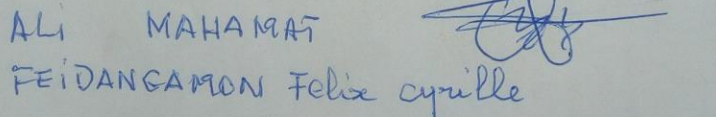 ALi MAHAMAT
FEiDANGAMON Felix cyrille